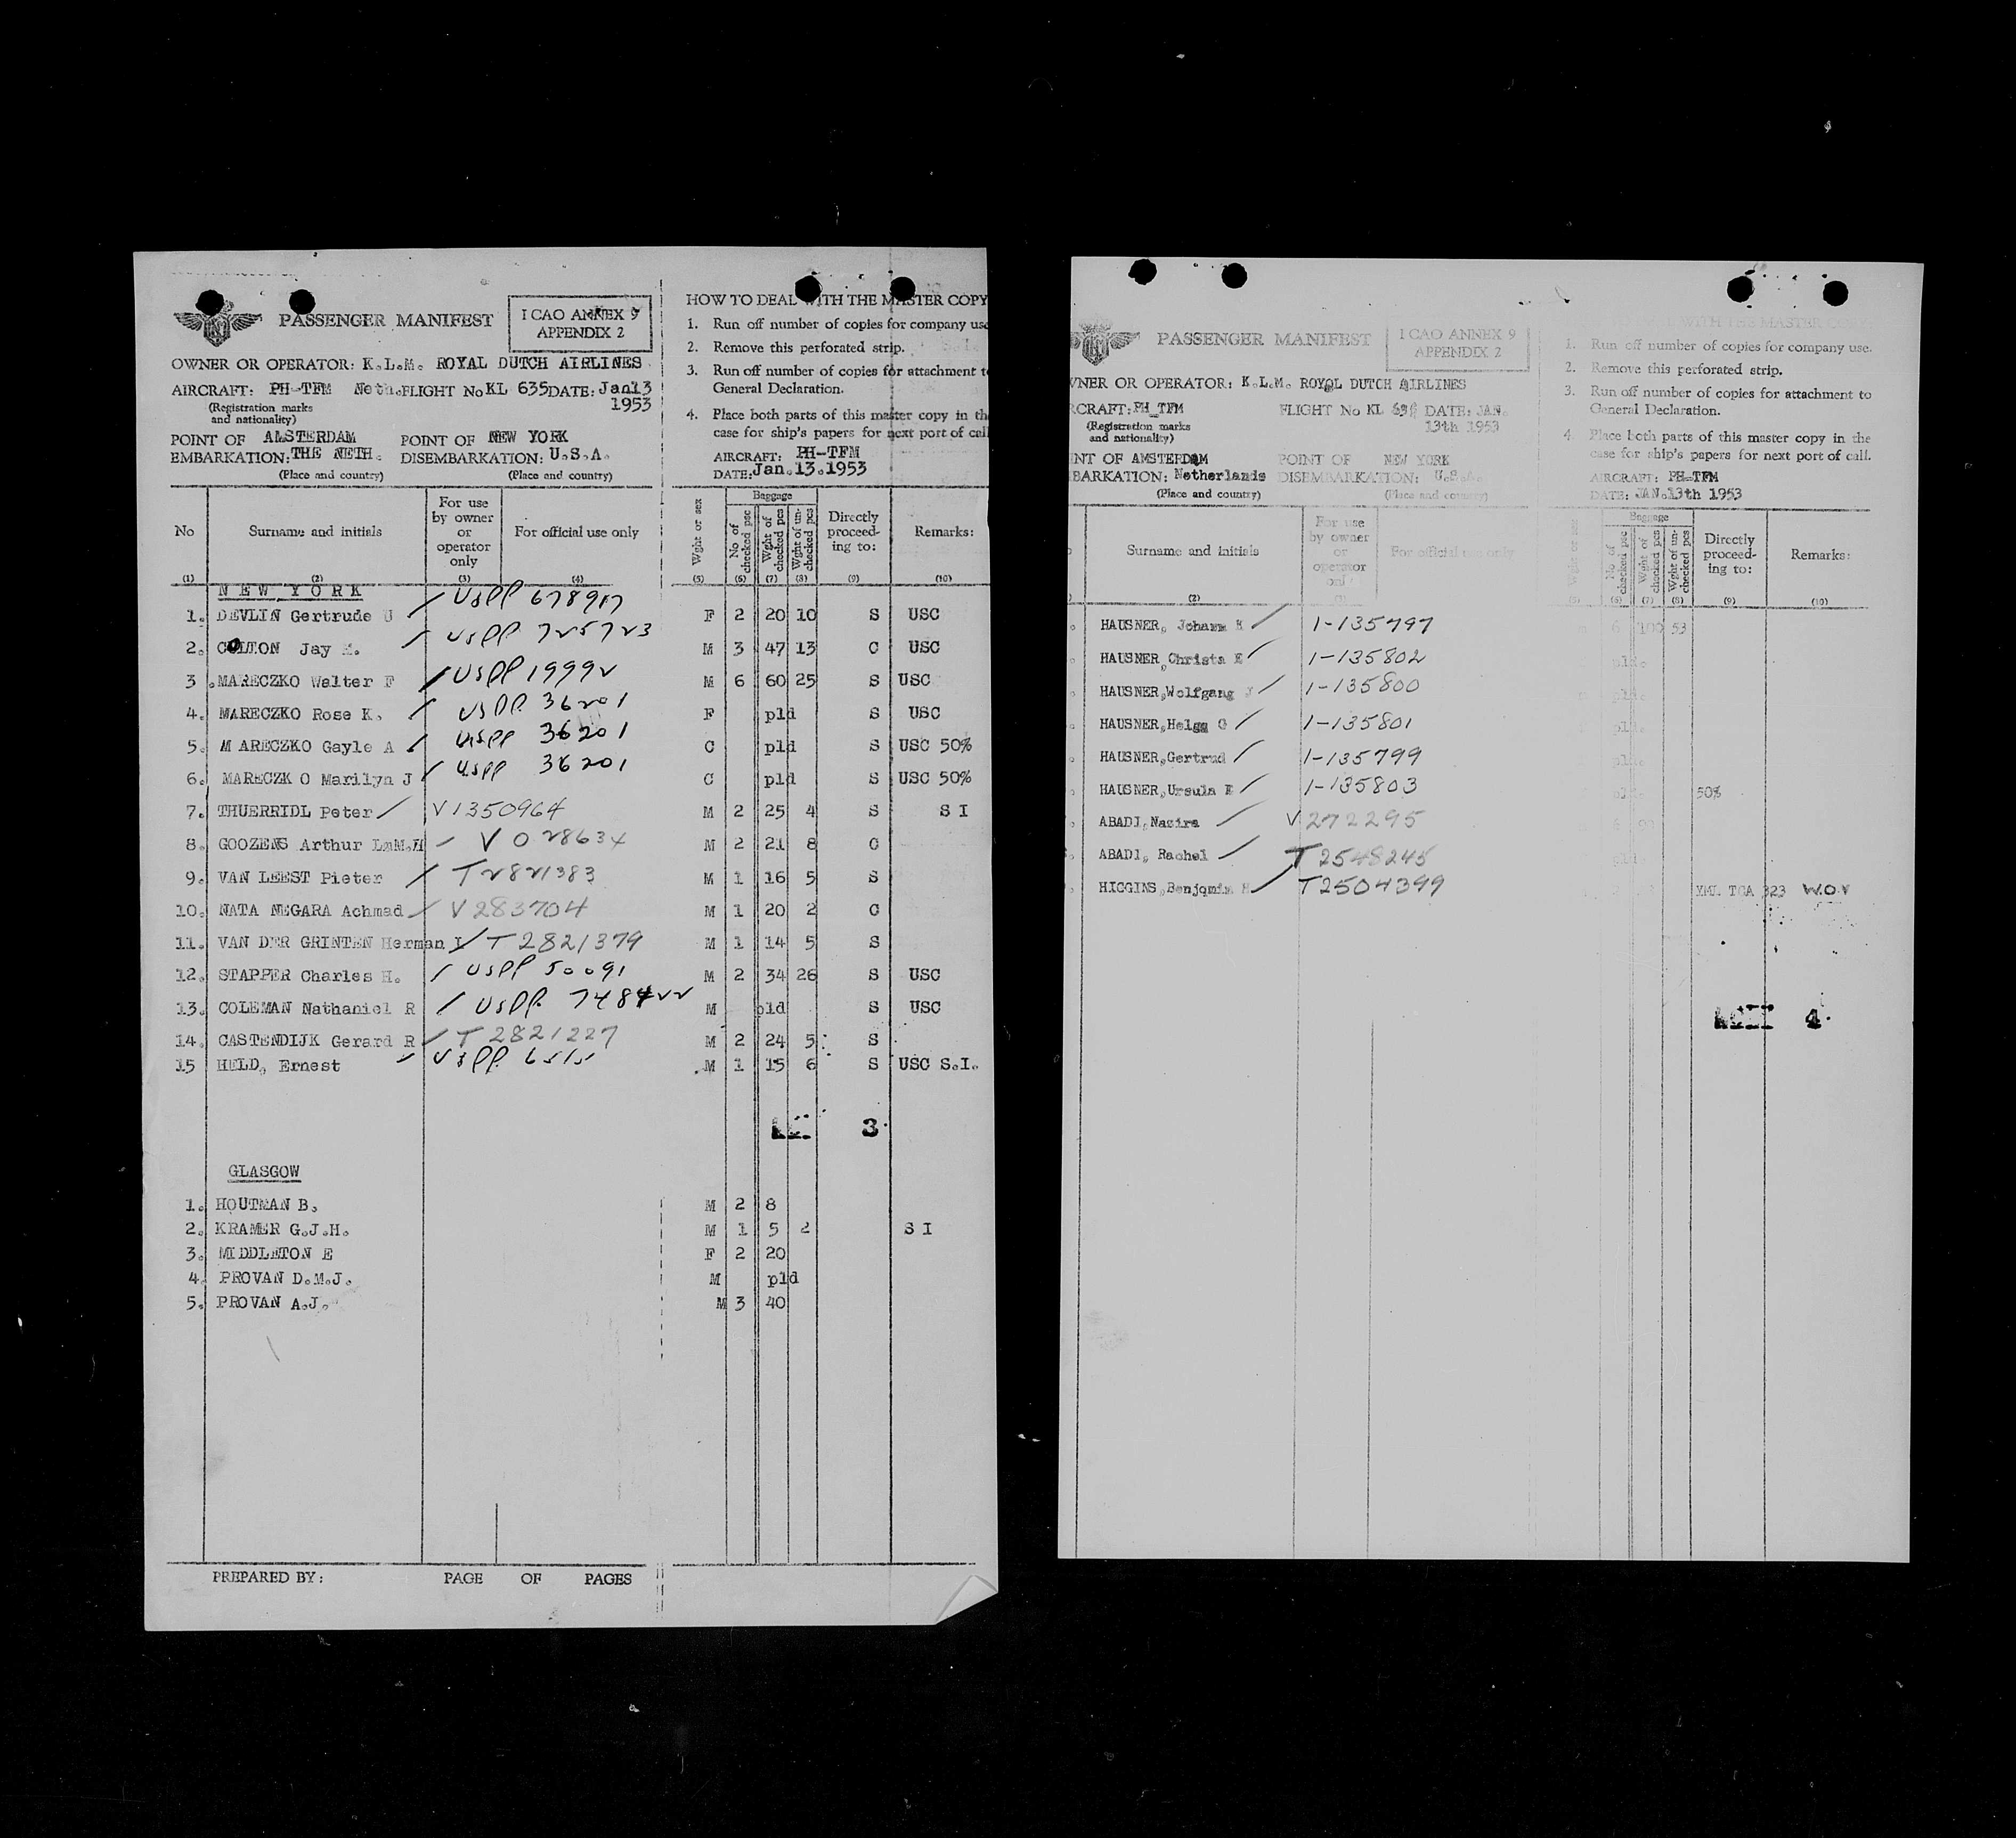 PASSENGER MANIFEST
I CAO ANNEX 9
APPENDIX 2
OWNER OR OPERATOR: K.L.M. ROYAL DUTCH AIRLINES
AIRCRAFT: PH-TFM Neth. FLIGHT No KL 635 DATE: Jan 13
1953
(Registration marks
and nationality)
POINT OF AMSTERDAM POINT OF NEW YORK
EMBARKATION: THE NETH. DISEMBARKATION: U.S.A.
(Place and country) (Place and country)
HOW TO DEAL WITH THE MASTER COPY
1. Run off number of copies for company use
2. Remove this perforated strip.
3. Run off number of copies for attachment to
General Declaration.
4. Place both parts of this master copy in the
case for ship's papers for next port of call
AIRCRAFT: PH-TFM
DATE: Jan.13.1953
No Surname and initials For use by owner or operator only For official use only Wght or sex Baggage No of checked psc Wght of checked pcs Wght of un-checked pcs Directly proceed-ing to: Remarks:
(1) (2) (3) (4) (5) (6) (7) (8) (9) (10)
NEW YORK
1. DEVLIN Gertrude U / USPP 678917 F 2 20 10 S USC
2. COLTON Jay / USPP 725723 M 3 47 13 C USC
3. MARECZKO Walter F / USPP 19992 M 6 60 25 S USC
4. MARECZKO Rose K. / USPP 36201 F pld S USC
5. MARECZKO Gayle A / USPP 36201 C pld S USC 50%
6. MARECZKO Marilyn J / USPP 36201 C pld S USC 50%
7. THUERRIDL Peter / V1350964 M 2 25 4 S S I
8. GOOZENS Arthur LmM.H / V 028634 M 2 21 8 C
9. VAN LEEST Pieter / T2821383 M 1 16 5 S
10. NATA NEGARA Achmad / V283704 M 1 20 2 C
11. VAN DER GRINTEN Herman / T 2821379 M 1 14 5 S
12. STAPPER Charles H. / USPP 50091 M 2 34 26 S USC
13. COLEMAN Nathaniel R / USPP. 748422 M pld S USC
14. CASTENDIJK Gerard R / T 2821227 M 2 24 5 S
15 HELD, Ernest / USPP. 6515 M 1 15 6 S USC S.I.
3
GLASGOW
1. HOUTMAN B. M 2 8
2. KRAMER G.J.H. M 1 5 2 S I
3. MIDDLETON E F 2 20
4. PROVAN D.M.J. M pld
5. PROVAN A.J. M 3 40
PREPARED BY: PAGE OF PAGES
PASSENGER MANIFEST
I CAO ANNEX 9
APPENDIX 2
WNER OR OPERATOR: K.L.M. ROYAL DUTCH AIRLINES
RCRAFT: PH_TFM FLIGHT No KL DATE: JAN.
13th 1953
(Registration marks
and nationality)
INT OF AMSTERDAM POINT OF NEW YORK
BARKATION: Netherlands DISEMBARKATION: U.S.A.
(Place and country) (Place and country)
WITH THE MASTER COPY
1. Run off number of copies for company use.
2. Remove this perforated strip.
3. Run off number of copies for attachment to
General Declaration.
4 Place both parts of this master copy in the
case for ship's papers for next port of call.
AIRCRAFT: PH-TFM
DATE: JAN.13th 1953
Surname and initials For use by owner or operator only For official use only Wght or sex Baggage No of checked psc Wght of checked pcs Wght of un-checked pcs Directly proceed-ing to: Remarks:
(2) (6) (7) (8) (9) (10)
HAUSNER, Johann / 1-135797 6 100 53
HAUSNER, Christa E / 1-135802 pld.
HAUSNER, Wolfgang / 1-135800
HAUSNER, Helga G / 1-135801
HAUSNER, Gertrud / 1-135799
HAUSNER, Ursula E / 1-135803 50%
ABADI, Nazira / V 272295
ABADI, Rachel / T 2548245
HIGGINS, Benjamin H / T2504399 YML TCA 323 W.O.V
4.